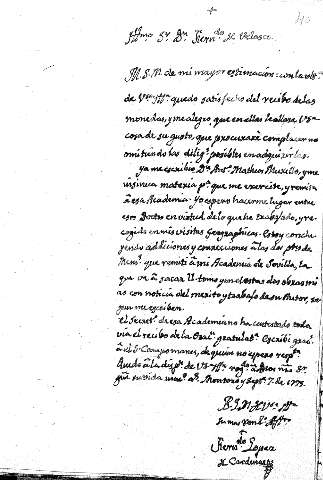 +
40
Illmo. Sr. Dn. Ferndo. de Velasco.
M. S. M. de mi mayor estimación: con la de
de Vsa. Illa. quedo satisfecho del recibo de las
monedas, y me alegro, que en ellas se allase Vsa.
cosa de su gusto, que procuraré complacer no
omitiendo las diligs. posibles en adquirirlas.
ya me escribió Dn. Anto. Matheos Murillo, y me
insinua materia pa. que me exercite, y remita
â esa Academia. Yo espero hacerme lugar entre
esos Doctos en virtud de lo que he trabajado, y re-
cogido en mis visitas Geographicas. Estoy conclu-
yendo addiciones y correcciones â las dos ptes. de
que remití â mi Academia de Sevilla, la
que va â sacar tomo y en el estas dos obras mi-
as con noticia del merito y trabajo de su Autor, se-
gun me escriben.
el Secreto. de esa Academia no ha contestado toda
via el recibo de la gratulata. Escribí
â el Sr. Campomanes, de quien no espero respta.
Quedo â la dispn. de Vsa. Illa. rogdo. â Dios nro. Sr.
gue. su vida ms. as. Montoro y Septe. 7. de 1775.
B. L. M. de Vsa. Illa.
su mas
Ferndo. Lopez
de Cardenas